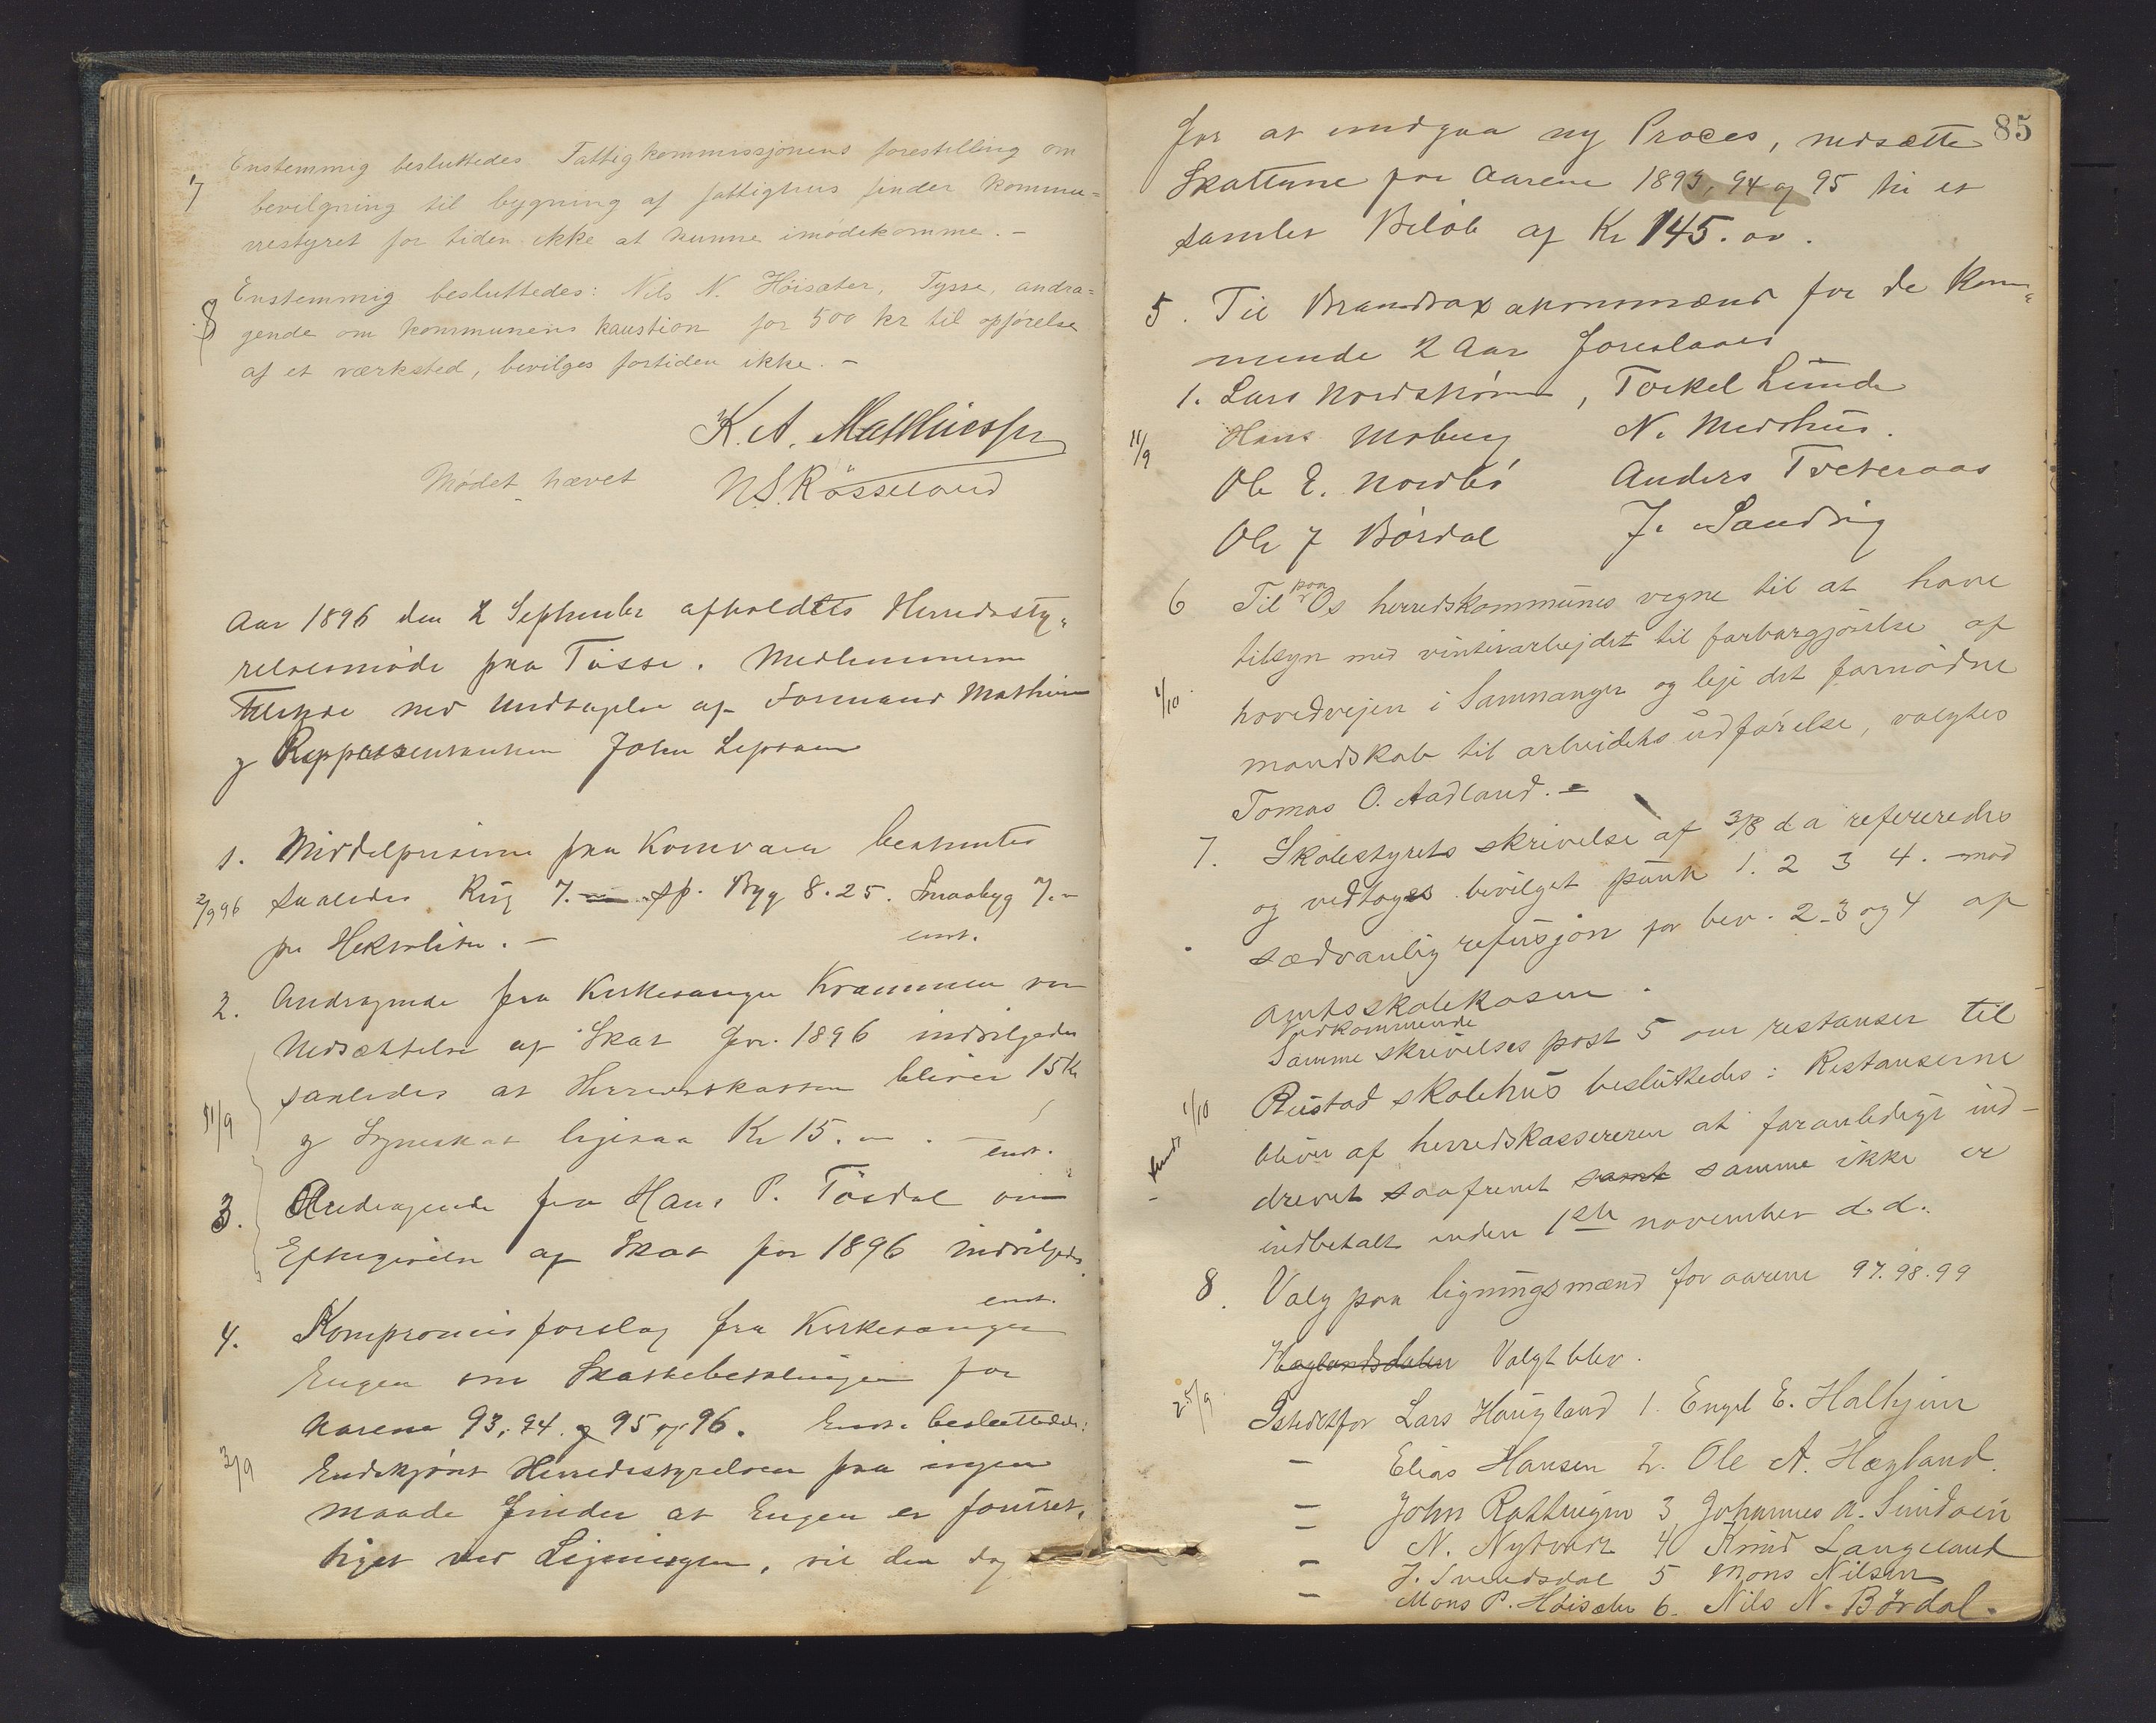 7 Enstemmig besluttedes Fattigkommissjonens forestilling om
bevilgning til bygning af fattighus finder kommu=
nestyret for tiden ikke at kunne imødekomme. -
8 Enstemmig besluttedes: Nils N. Høisæter, Tysse, andra=
gende om kommunens kaustion for 500 kr til opførelse
af et værksted, bevilges fortiden ikke. -
K. A. Mathiesen
Mødet hævet N S Røsseland
Aar 1896 den 2 September afholdtes Herredssty„
relsesmøde paa Tøsse. Medlemmerne
tilstede med Undtagelse af Formand Mathiesen
og Reppræsentanten John Lepsøen
1. Middelpriserne paa Kornvarer bestemtes
2/9 96 saaledes Rug 7.- Byg 8.25. Smaabyg 7.-
pr Hektoliter. - enst.
2. Andragende fra Kirkesanger Krammen om
Nedsættelse af Skat for 1896 indvilgedes
saaledes at Herredsskatten bliver 15 Kr
11/9 og Lyneskat ligesaa Kr 15. - enst.
3. Andragende fra Hans P. Tøsdal om
Eftergivelse af Skat for 1896 indvilgedes.
enst.
4. Kompromisforslag fra Kirkesanger
Eugen om Skattebetalingen for
Aarene 93, 94 og 95 og 96. Enst. besluttedes:
3/9 Endskjønt Herredsstyrelsen paa ingen
maade finder at Eugen er foruret„
tiget ved Ligningen, vil den dog
85
for at undgaa ny Proces, nedsætte
Skatterne for Aarene 1893, 94 og 95 til et
samlet Beløb af Kr 145.00.
5. Til Brandtaxationsmænd for de kom„
mende 2 Aar foreslaaes
1. Lars Nordstrøm, Torkel Lunde
11/9 Hans Moberg N. Medhus.
Ole E. Nordbø Anders Tveteraas
Ole J Børdal J. Sandvig
6 Til paa Os herredskommunes vegne til at have
tilsyn med vinterarbejdet til farbargjørelse af
1/10 hovedvejen i Samnanger og leje det fornødne
mandskab til arbeidets udførelse, valgtes
Tomas O. Aadland. =
7. Skolestyrets skrivelse af 3/8 d a refereredes
og vedtoges bevilget punk 1. 2 3 4. mod
sædvanlig refusjon for bev. 2-3 og 4 af
amtsskolekasen.
Vedkommende
Samme skrivelses post 5 om restanser til
1/10 Rustad skolehus besluttedes: Restanserne
bliver af herredskassereren at foranledige ind-
- sendt drevet saafremt samt samme ikke er
indbetalt inden 1ste november d.d.
8. Valg paa ligningsmænd for aarene 97. 98. 99
Haglandsdalen Valgt blev.
25/9 Istedetfor Lars Haugland 1. Engel E. Halhjem
- Elias Hansen 2. Ole A. Hægland.
- John Rottingen 3 Johannes A. Sundøen
- N. Nytvedt 4 Knud Langeland
- J. Svendsdal 5 Mons Nilsen
- Mons P. Høisæter 6. Nils N. Børdal.